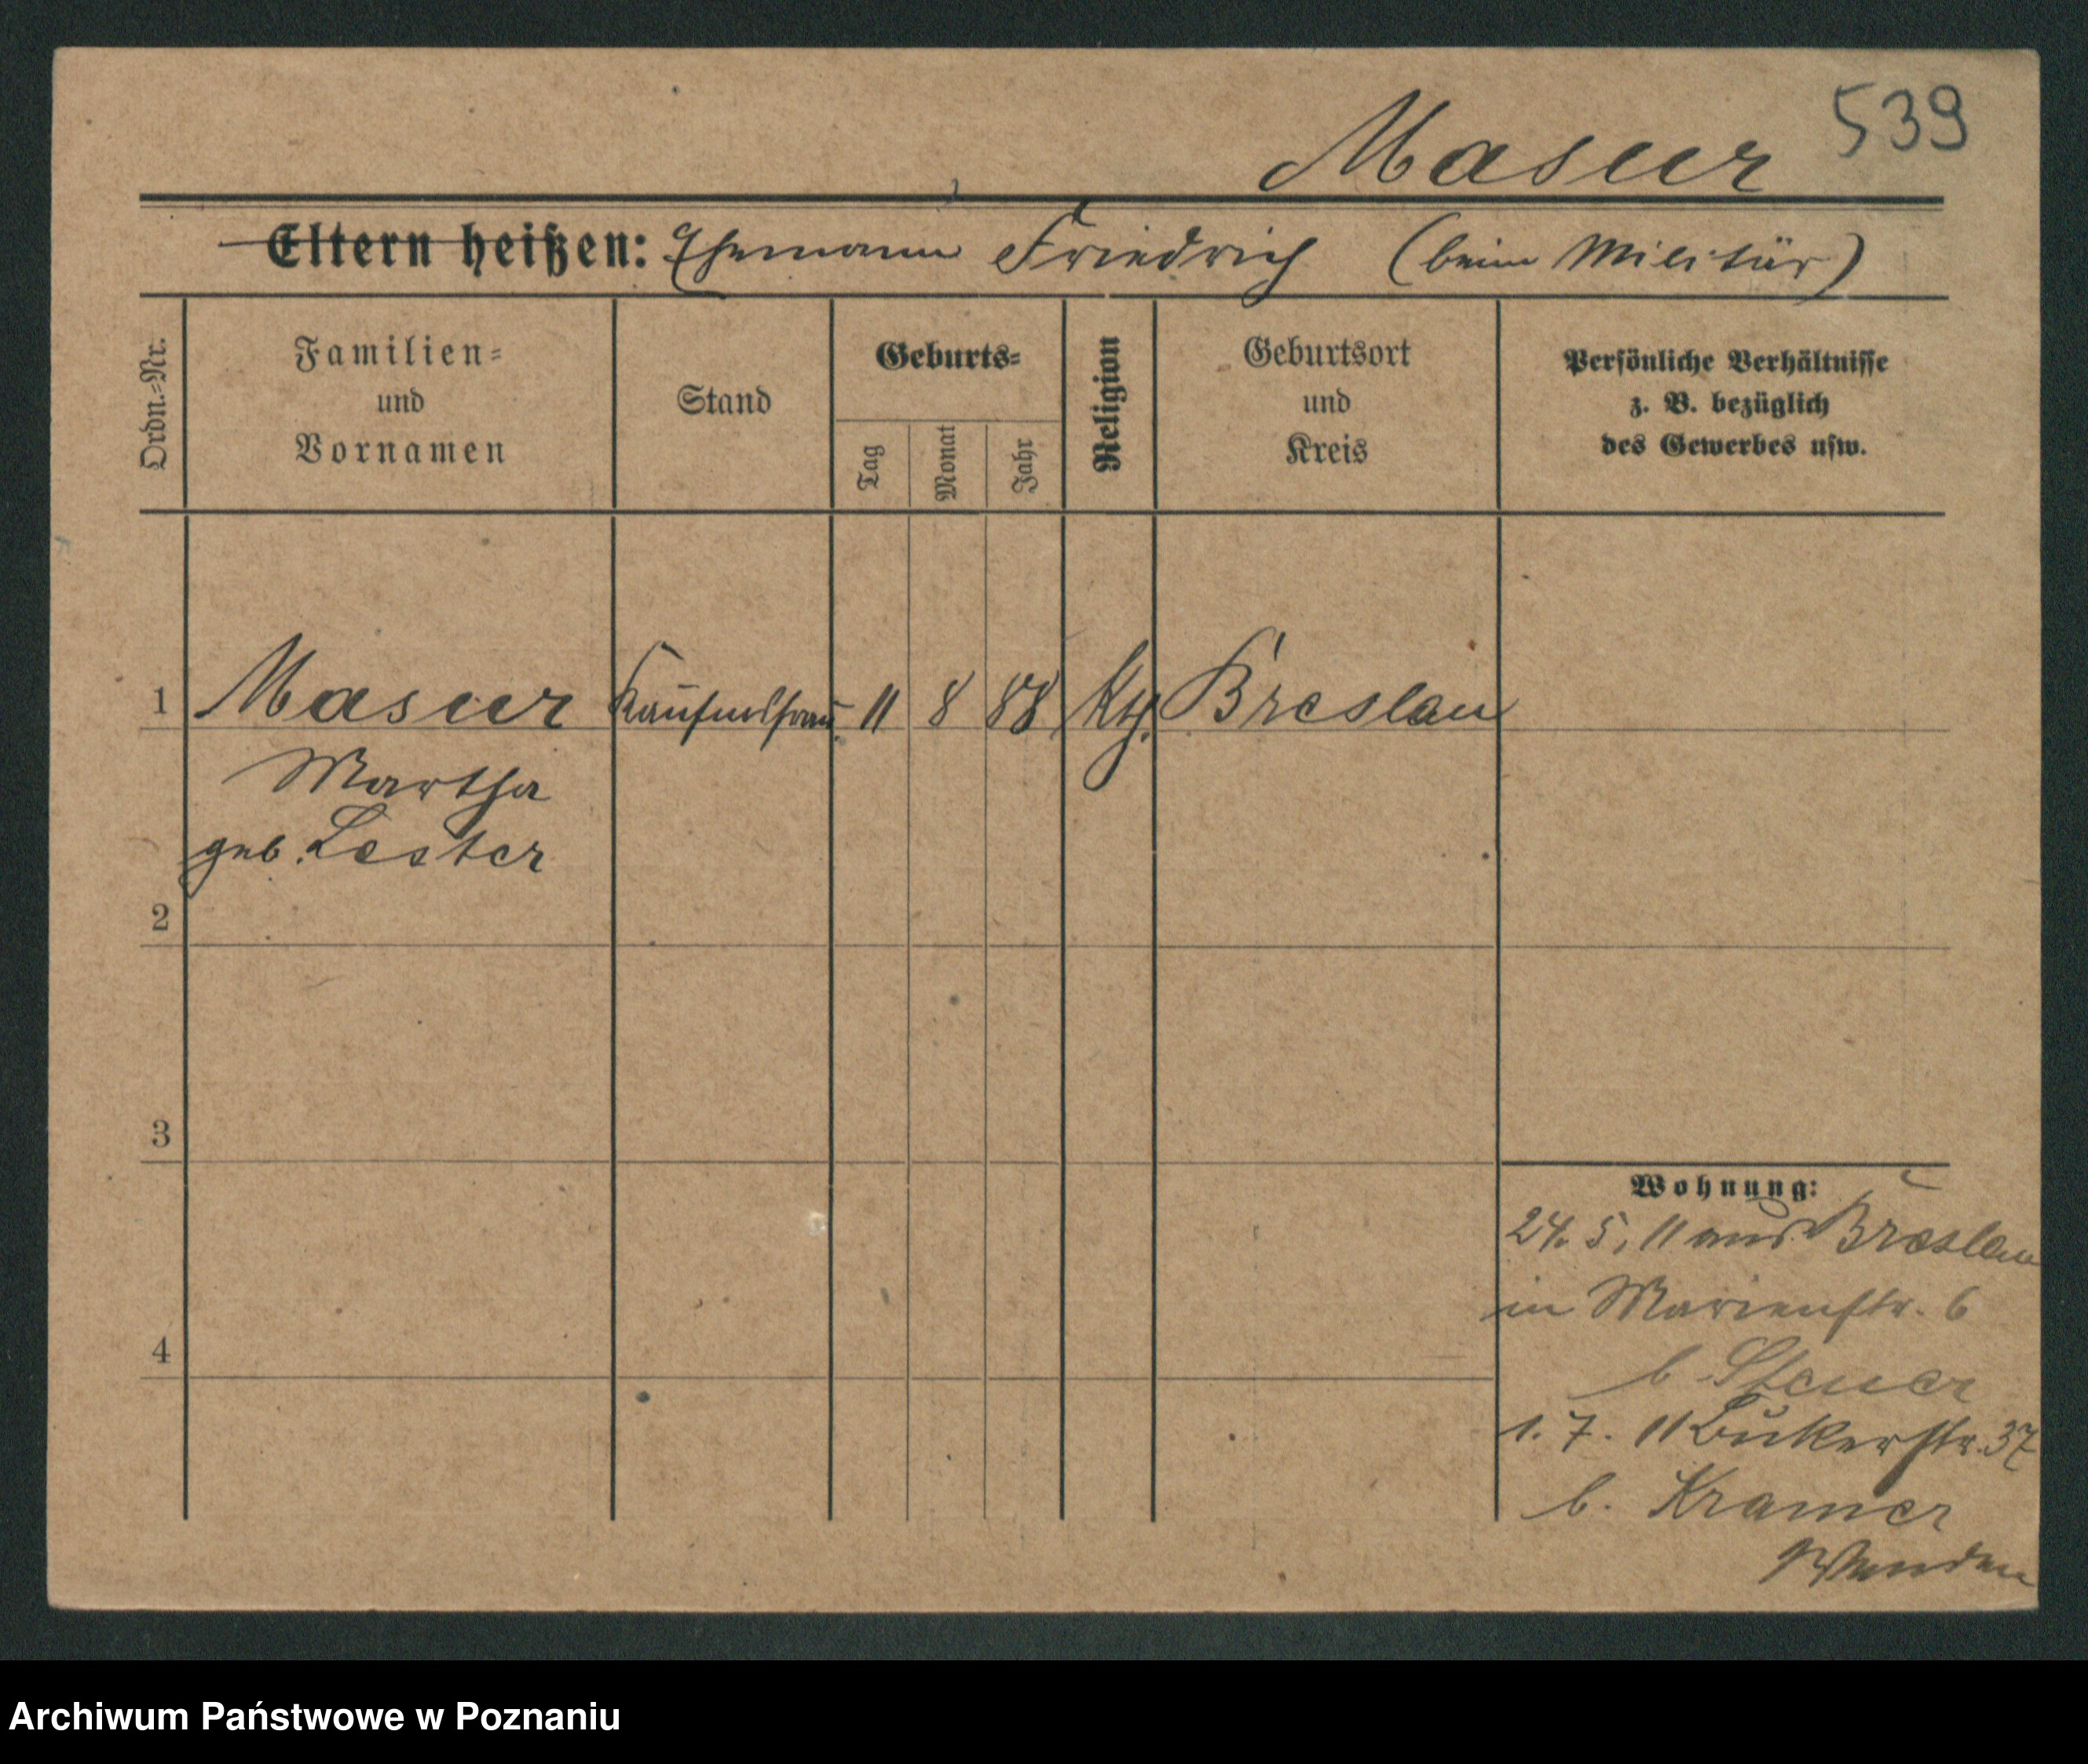 539
Masur
Eltern heißen: Ehemann Friedrich (beim Militär)
Ordn.-Nr.
Familien-
und
Vornamen
Stand
Geburts-
Tag
Monat
Jahr
Religion
Geburtsort
und
Kreis
Persönliche Verhältnisse
z. B. bezüglich
des Gewerbes usw.
1 Masur 11 8 88 Breslau
Martha
geb. Lester
2
3
4
Wohnung:
24. 5. 11 aus Breslau
in Marienstr. 6
b. Steuer
1. 7. 11 Bukerstr. 37
b. Kramer
Wenden
Archiwum Państwowe w Poznaniu